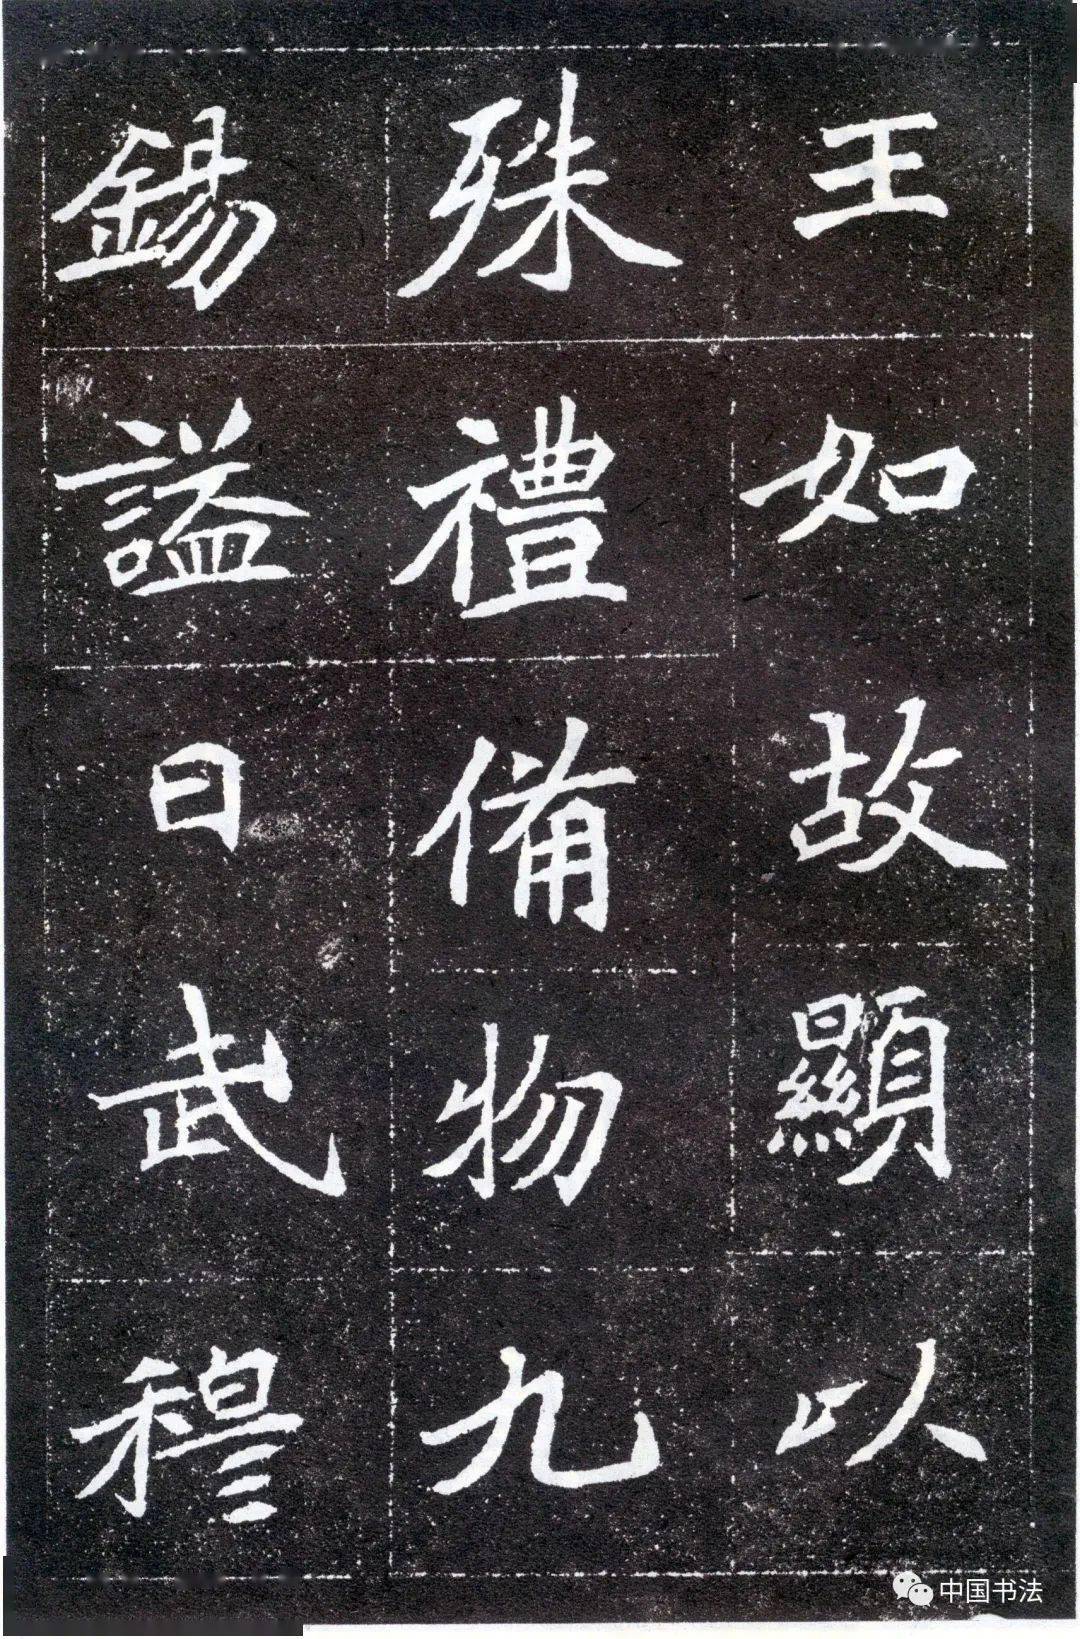 王如故顯以
殊禮備物九
錫謚曰武穆
中国书法